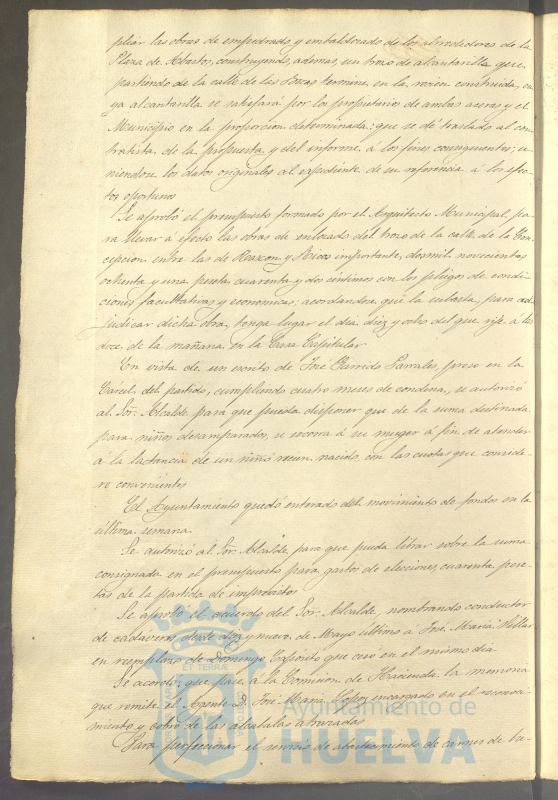 pliar las obras de empedrado y embaldosado de los alrededores de la
Plaza de Abasto, construyendo, ademas, un trozo de alcantarilla que,
partiendo de la calle de las Bocas termine en la recien construida, cu
ya alcantarilla se satisfará por los propietarios de ambas aceras y el
Municipio en la proporcion determinada; que se dé traslado al con
tratista de la propuesta y del informe á los fines consiguientes; u
niendose los datos originales al expediente de su referencia á los efec
tos oportunos
Se aprobó el presupuesto formado por el Arquitecto Municipal, pa
ra llevar á efecto las obras de enlosado del trozo de la calle de la Con
cepcion entre las de Rascon y Ricos importante, dosmil novecientas
ochenta y una peseta cuarenta y dos centimos con los pliegos de condi
ciones facultativas y economicas; acordandose que la subasta, para ad
judicar dicha obra, tenga lugar el dia diez y ocho del que rije á las
doce de la mañana en la Casa Capitular
En vista de un escrito de José Garrido Parrales, preso en la
Carcel del partido, cumpliendo cuatro meses de condena, se autorizó
al Sor. Alcalde para que pueda disponer que de la suma destinada
para niños desamparados, se socorra á su muger á fin de atender
á la lactancia de un niño recien nacido, con las cuotas que conside-
re convenientes
El Ayuntamiento quedó enterado del movimiento de fondos en la
última semana
Se autorizó al Sor. Alcalde, para que pueda librar sobre la suma
consignada en el presupuesto para gastos de elecciones, cuarenta pese
tas de la partida de imprevistos
Se aprobó el acuerdo del Sor. Alcalde, nombrando conductor
de cadaveres, desde diez y nueve de Mayo último á José Maria Millar
en reemplazo de Domingo Expósito que cesó en el mismo dia
Se acordó, que pase á la Comision de Hacienda la memoria
que remite el Agente D. José Maria encargado en el reconoci
miento y cobro de las alcabalas
Para perfeccionar el servicio de abastecimiento de carnes de bu-
Ayuntamiento de
HUELVA